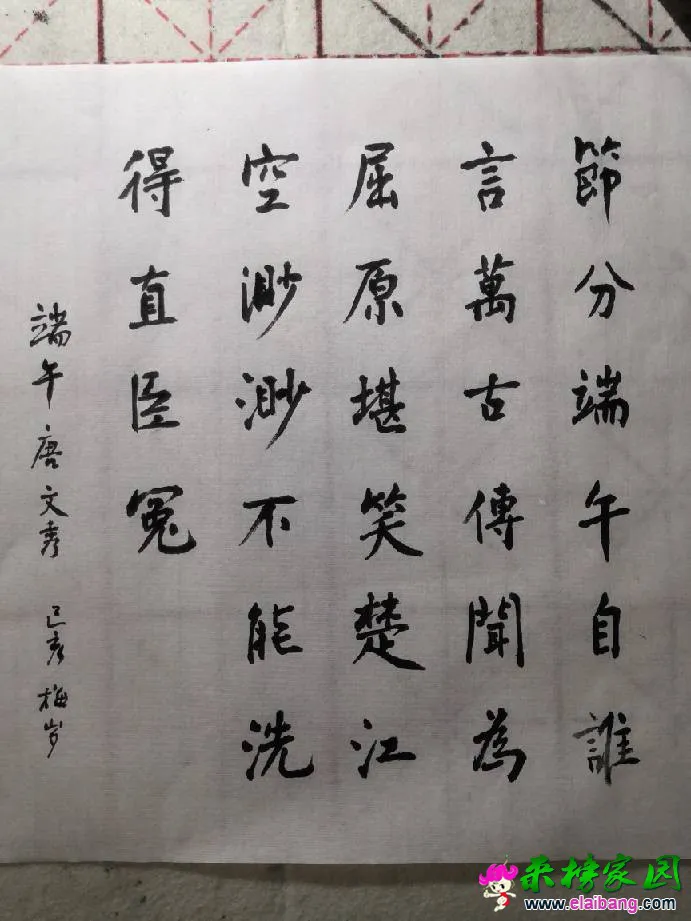 節分端午自誰
言萬古傳聞為
屈原堪笑楚江
空渺渺不能洗
得直臣冤
端午唐文秀 己亥梅岁
来榜家园
www.elaibang.com